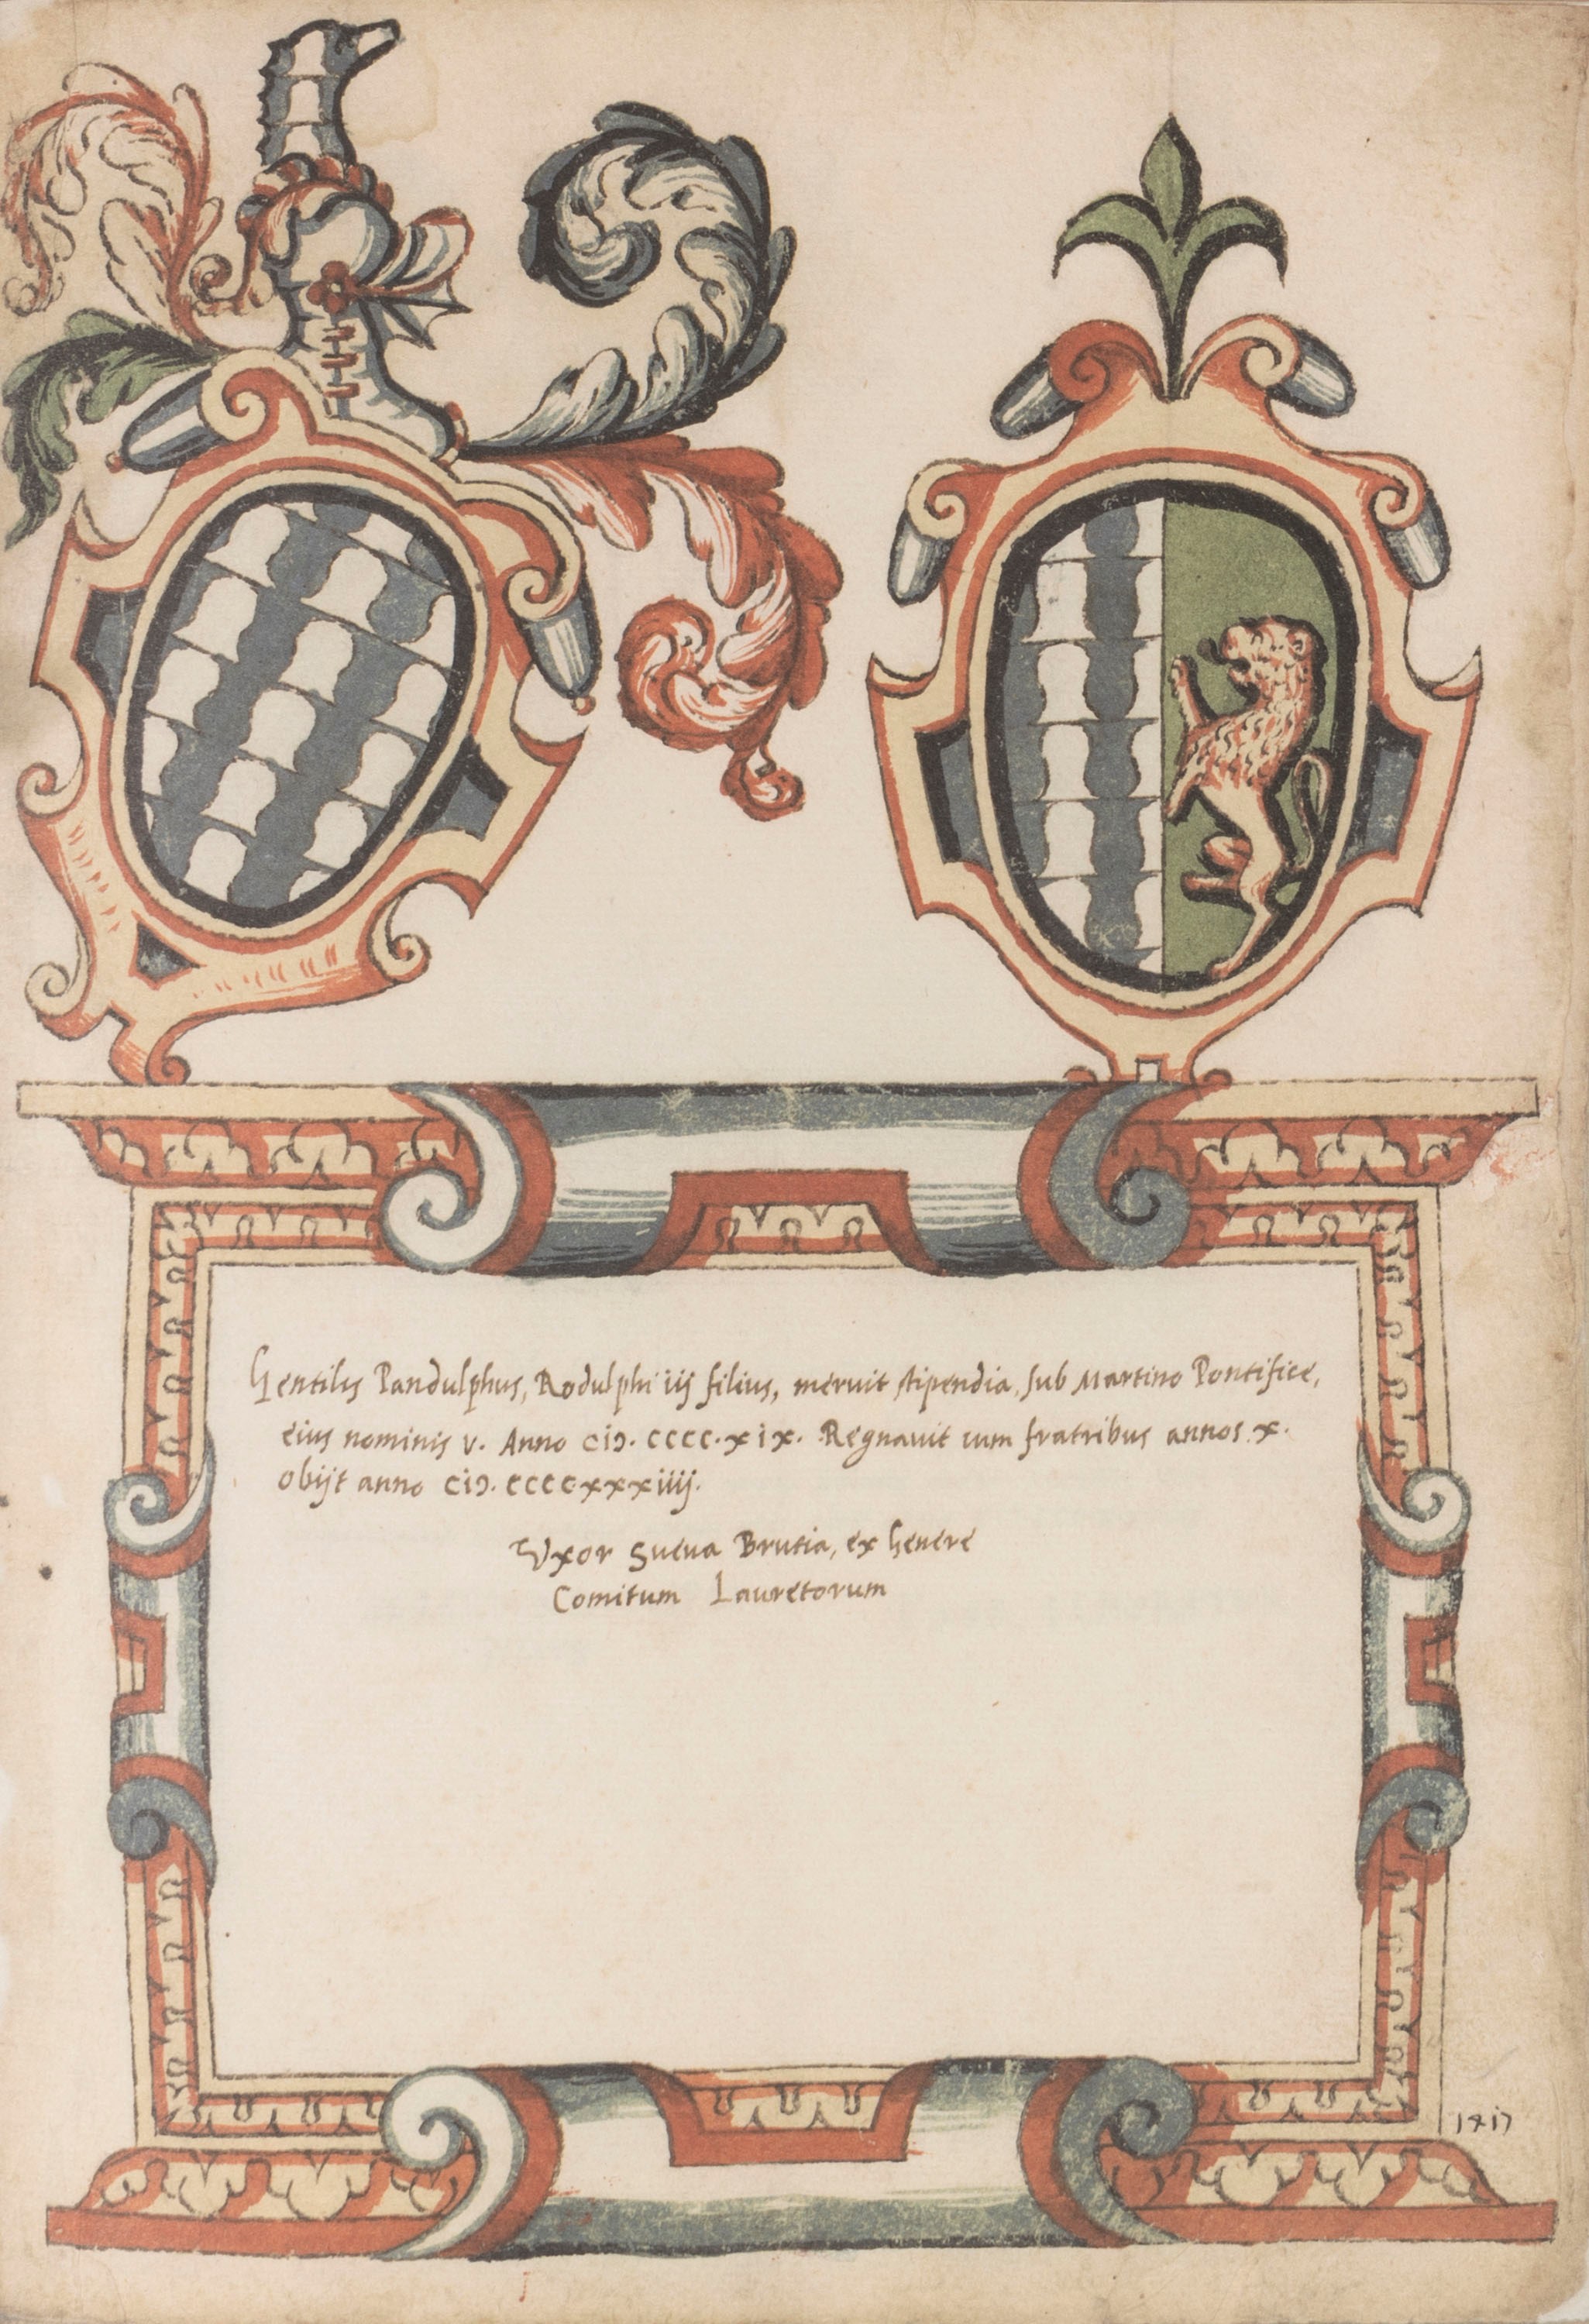 Gentilis Pandulphus, Rodulphi iij filius, meruit stipendia, sub Martino Pontifice,
eius nominis v. Anno CIↃ. CCCC. xix. Regnauit cum fratribus annos x.
obijt anno CIↃ. CCCC. xxxiiij.
Vxor Sueua Brutia, ex Genere
Comitum Lauretorum
1417